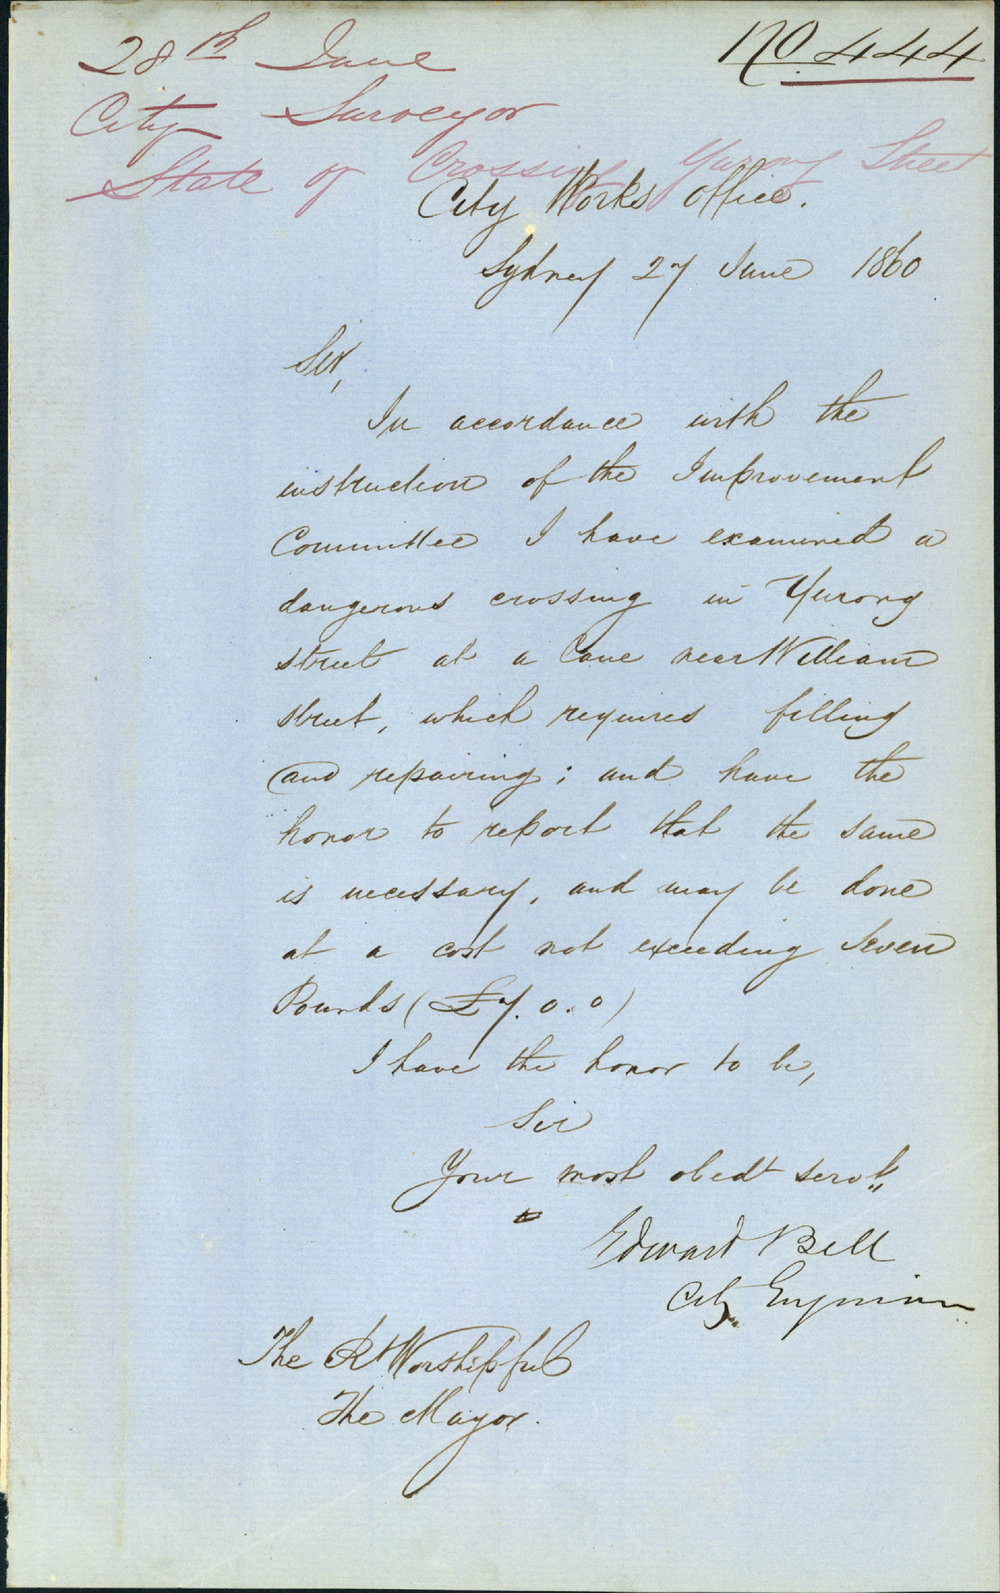 No. 444
28th June
City Surveyor
State of Crossing Yurong Street
City Works Office.
Sydney 27 June 1860
Sir,
In accordance with the
instruction of the Improvement
Committee I have examined a
dangerous crossing in Yurong
street at a lane near William
street, which requires filling
and repairing; and have the
honor to report that the same
is necessary, and may be done
at a cost not exceeding Seven
Pounds (£7.0.0)
I have the honor to be,
Sir
Your most obedt servt
Edward Bell
City Engineer
The Rt Worshipful
The Mayor.